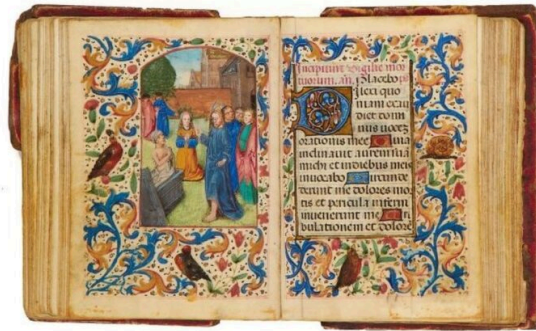 Incipiunt vigilie mor
tuorum. an. Placebo
Dilexi quo
niam exau
diet domi
nus vocem
orationis mee Quia
inclinavit aurem suā
michi et in diebus meis
invocabo Circumde
derunt me dolores mor
tis et pericula inferni
invenerunt me Tri
bulationem et dolorē